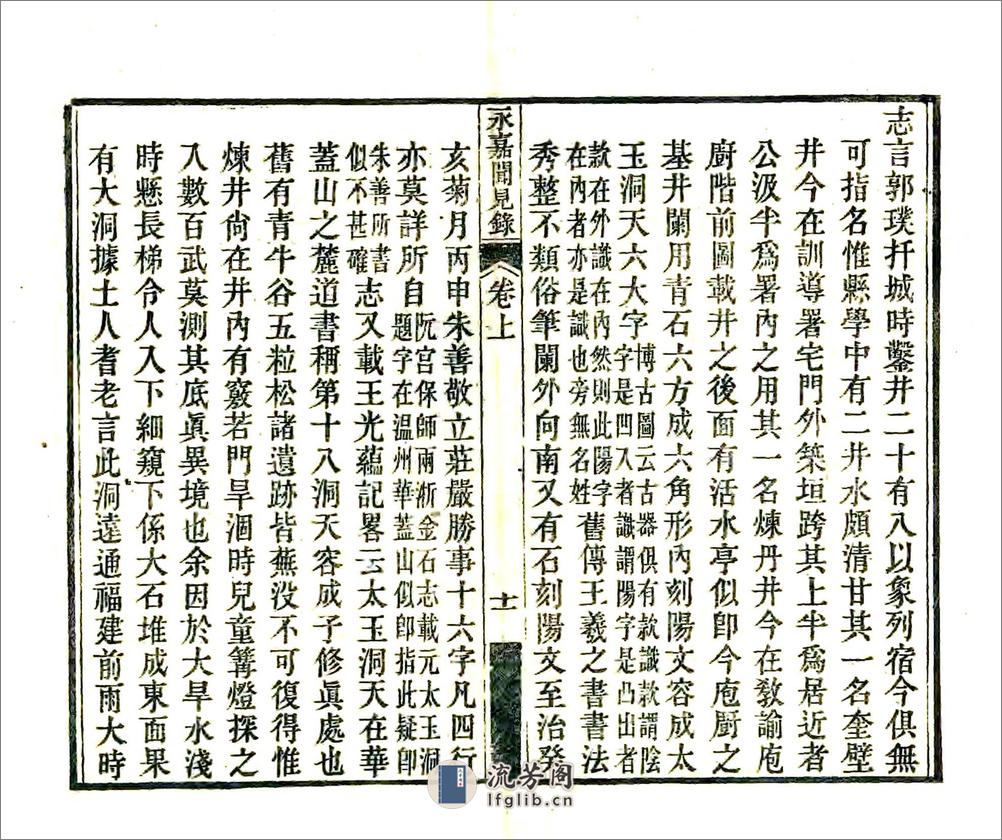 志言郭璞扦城時鑿井二十有八以象列宿今俱無
可指名惟縣學中有二井水頗清甘其一名奎壁
井今在訓導署宅門外築垣跨其上半爲居近者
公汲半爲署內之用其一名煉丹井今在敎諭庖
廚階前圖載井之後面有活水亭似卽今庖廚之
基井闌用青石六方成六角形內刻陽文容成太
玉洞天六大字博古圖云古器俱有款識款謂陰
字是凹入者識謂陽字是凸出者
款在外識在內然則此陽字
在內者亦是識也旁無名姓舊傳王羲之書書法
秀整不類俗筆闌外向南又有石刻陽文至治癸
永嘉聞見錄
卷上
十一
亥菊月丙申朱善敬立莊嚴勝事十六字凡四行
亦莫詳所自阮宫保師兩浙金石志載元太玉洞
題字在温州華蓋山似卽指此疑卽
朱善所書
似不甚確志又載王光蘊記畧云太玉洞天在華
蓋山之麓道書稱第十八洞天容成子修眞處也
舊有青牛谷五粒松諸遺跡皆蕪没不可復得惟
煉井尙在井內有竅若門旱涸時兒童篝燈探之
入數百武莫測其底眞異境也余因於大旱水淺
時懸長梯令人入下細窺下係大石堆成東面果
有大洞據土人耆老言此洞逺通福建前雨大時
流芳阁
lfglib.cn